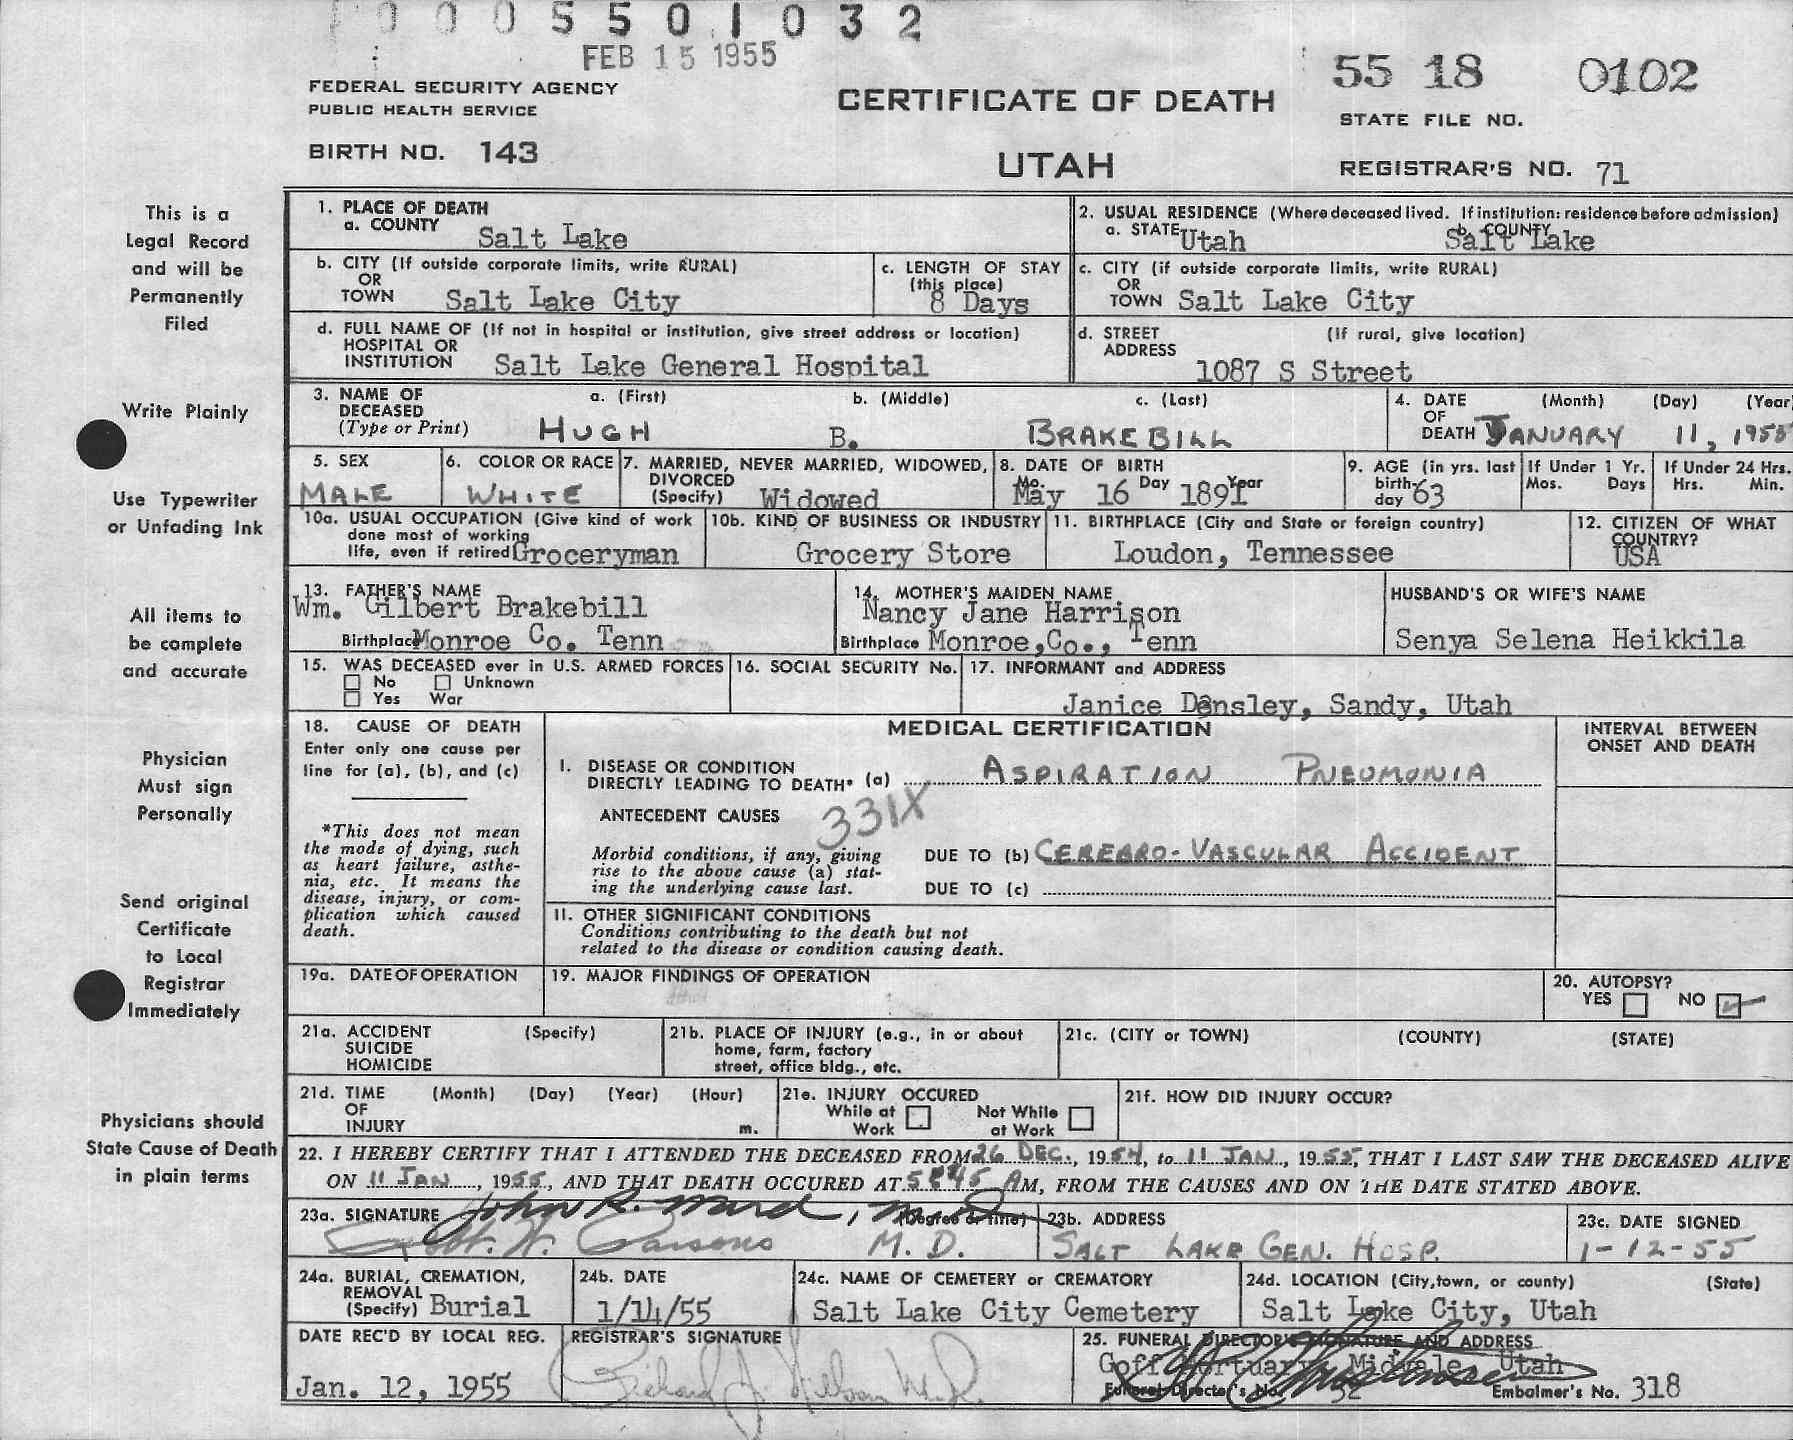 0005501032
FEB 15 1955
FEDERAL SECURITY AGENCY
PUBLIC HEALTH SERVICE
BIRTH NO. 143
CERTIFICATE OF DEATH
UTAH
55 18 0102
STATE FILE NO.
REGISTRAR'S NO. 71
This is a
Legal Record
and will be
Permanently
Filed
Write Plainly
Use Typewriter
or Unfading Ink
All items to
be complete
and accurate
Physician
Must sign
Personally
Send original
Certificate
to Local
Registrar
Immediately
Physicians should
State Cause of Death
in plain terms
1. PLACE OF DEATH
a. COUNTY Salt Lake
2. USUAL RESIDENCE (Where deceased lived. If institution: residence before admission)
a. STATE Utah b. COUNTY Salt Lake
b. CITY (If outside corporate limits, write RURAL)
OR
TOWN Salt Lake City
c. LENGTH OF STAY
(this place)
8 Days
c. CITY (if outside corporate limits, write RURAL)
OR
TOWN Salt Lake City
d. FULL NAME OF (If not in hospital or institution, give street address or location)
HOSPITAL OR
INSTITUTION Salt Lake General Hospital
d. STREET (If rural, give location)
ADDRESS
1087 S Street
3. NAME OF a. (First) b. (Middle) c. (Last)
DECEASED
(Type or Print) HUGH B. BRAKEBILL
4. DATE (Month) (Day) (Year
OF
DEATH JANUARY 11, 1955
5. SEX
MALE
6. COLOR OR RACE
WHITE
7. MARRIED, NEVER MARRIED, WIDOWED,
DIVORCED
(Specify) Widowed
8. DATE OF BIRTH
Mo. Day Year
May 16 1891
9. AGE (in yrs. last
birth-
day 63
If Under 1 Yr.
Mos. Days
If Under 24 Hrs.
Hrs. Min.
10a. USUAL OCCUPATION (Give kind of work
done most of working
life, even if retired Groceryman
10b. KIND OF BUSINESS OR INDUSTRY
Grocery Store
11. BIRTHPLACE (City and State or foreign country)
Loudon, Tennessee
12. CITIZEN OF WHAT
COUNTRY?
USA
13. FATHER'S NAME
Wm. Gilbert Brakebill
Birthplace Monroe Co. Tenn
14. MOTHER'S MAIDEN NAME
Nancy Jane Harrison
Birthplace Monroe,Co., Tenn
HUSBAND'S OR WIFE'S NAME
Senya Selena Heikkila
15. WAS DECEASED ever in U.S. ARMED FORCES
No Unknown
Yes War
16. SOCIAL SECURITY No.
17. INFORMANT and ADDRESS
Janice Densley, Sandy, Utah
18. CAUSE OF DEATH
Enter only one cause per
line for (a), (b), and (c)
*This does not mean
the mode of dying, such
as heart failure, asthe-
nia, etc. It means the
disease, injury, or com-
plication which caused
death.
MEDICAL CERTIFICATION
INTERVAL BETWEEN
ONSET AND DEATH
I. DISEASE OR CONDITION
DIRECTLY LEADING TO DEATH* (a) ASPIRATION PNEUMONIA
ANTECEDENT CAUSES 331X
Morbid conditions, if any, giving
rise to the above cause (a) stat-
ing the underlying cause last.
DUE TO (b) CEREBRO-VASCULAR ACCIDENT
DUE TO (c)
II. OTHER SIGNIFICANT CONDITIONS
Conditions contributing to the death but not
related to the disease or condition causing death.
19a. DATE OF OPERATION
19. MAJOR FINDINGS OF OPERATION
20. AUTOPSY?
YES NO
21a. ACCIDENT (Specify)
SUICIDE
HOMICIDE
21b. PLACE OF INJURY (e.g., in or about
home, farm, factory
street, office bldg., etc.
21c. (CITY or TOWN) (COUNTY) (STATE)
21d. TIME (Month) (Day) (Year) (Hour)
OF
INJURY m.
21e. INJURY OCCURED
While at Not While
Work at Work
21f. HOW DID INJURY OCCUR?
22. I HEREBY CERTIFY THAT I ATTENDED THE DECEASED FROM 26 DEC., 1954, to 11 JAN., 1955, THAT I LAST SAW THE DECEASED ALIVE
ON 11 JAN, 1955, AND THAT DEATH OCCURED AT 5:45 AM, FROM THE CAUSES AND ON THE DATE STATED ABOVE.
23a. SIGNATURE John R. Ward, M.D. (Degree or title)
W. Parsons M.D.
23b. ADDRESS
SALT LAKE GEN. HOSP.
23c. DATE SIGNED
1-12-55
24a. BURIAL, CREMATION,
REMOVAL
(Specify) Burial
24b. DATE
1/14/55
24c. NAME OF CEMETERY or CREMATORY
Salt Lake City Cemetery
24d. LOCATION (City, town, or county) (State)
Salt Lake City, Utah
DATE REC'D BY LOCAL REG.
Jan. 12, 1955
REGISTRAR'S SIGNATURE
Richard J. Nelson M.D.
25. FUNERAL DIRECTOR'S SIGNATURE AND ADDRESS
Goff Mortuary Midvale Utah
Funeral Director's No. 32 Embalmer's No. 318